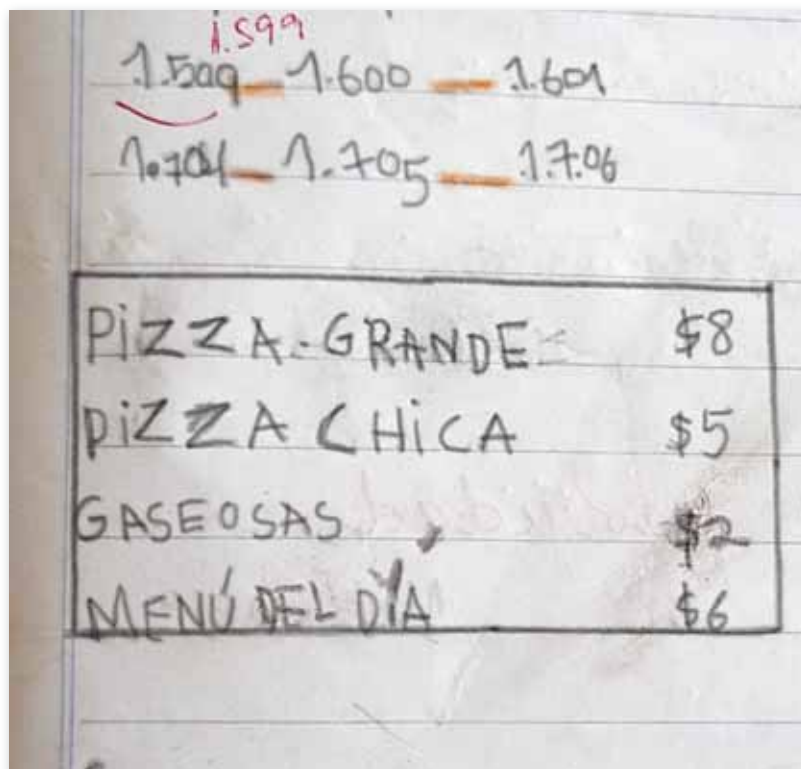 1.599
1.509 — 1.600 — 1.601
1.704 — 1.705 — 1.7.06
PiZZA-GRANDE $8
PiZZA CHiCA $5
GASEOSAS $2
MENÚ DEL DÍA $6